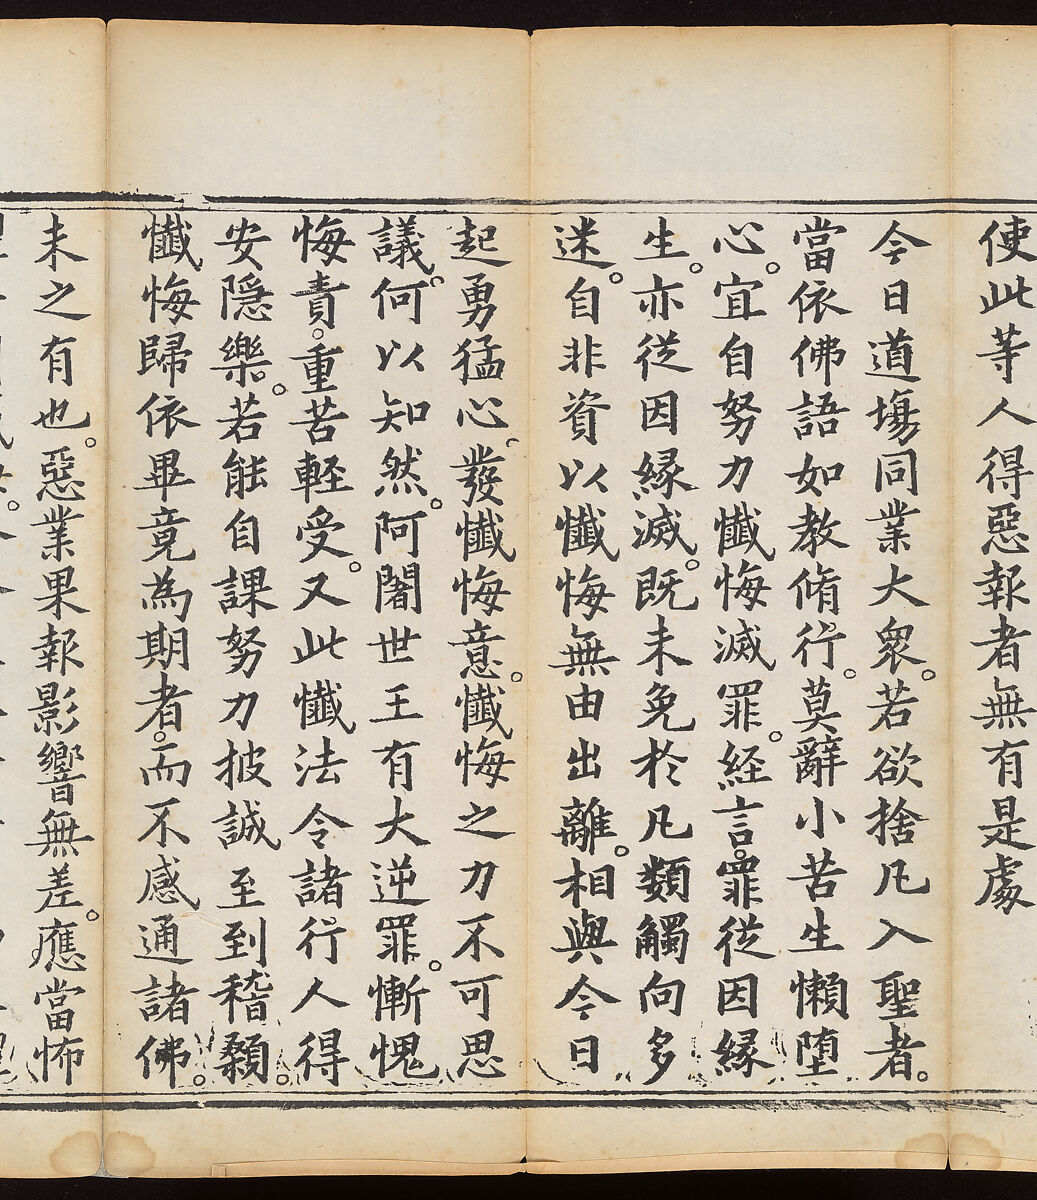 使此等人得惡報者無有是處
今日道場同業大衆。若欲捨凡入聖者。
當依佛語如教脩行。莫辭小苦生懶墮
心。宜自努力懺悔滅罪。経言。罪從因緣
生。亦從因緣滅。既未免於凡類觸向多
迷。自非資以懺悔無由出離。相與今日
起勇猛心。發懺悔意。懺悔之力不可思
議。何以知然。阿闍世王有大逆罪。慚愧
悔責。重苦輕受。又此懺法令諸行人得
安隱樂。若能自課努力披誠至到稽顙。
懺悔歸依畢竟為期者。而不感通諸佛。
未之有也。惡業果報影響無差。應當怖